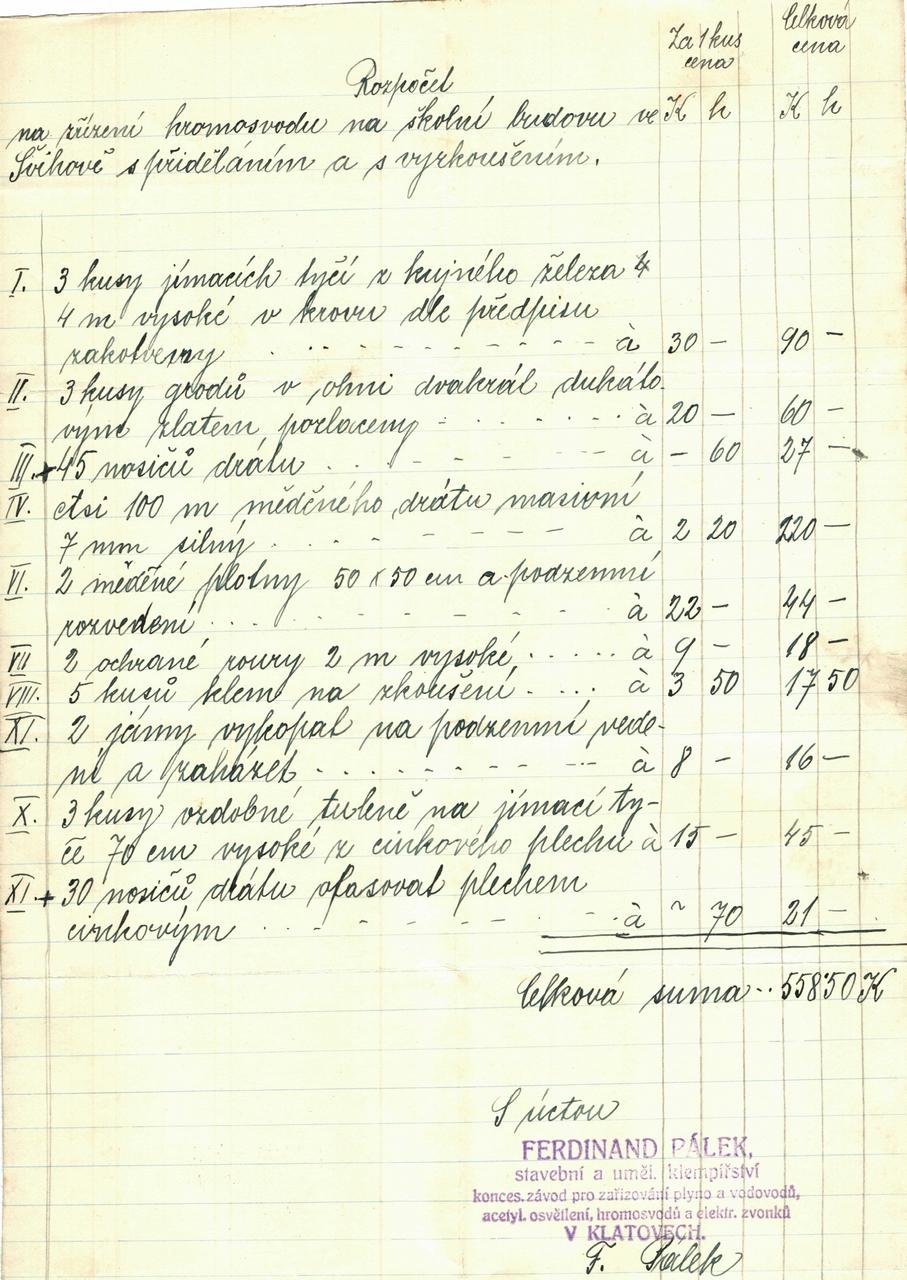 Za 1 kus Celková
cena cena
Rozpočet
na zřízení hromosvodu na školní budovu ve K h K h
Švihově s přiděláním a s vyzkoušením.
I. 3 kusy jímacích tyčí z kujného železa 4
4 m vysoké v krovu dle předpisu
zakotveny à 30 — 90 —
II. 3 kusy hrodů v ohni dvakrál dukáto-
vým zlatem pozlaceny à 20 — 60 —
III. + 45 nosičů drátu à — 60 27 —
IV. etsi 100 m měděného drátu masivní
7 mm silný à 2 20 220 —
VI. 2 měděné plotny 50 x 50 cm a podzemní
rozvedení à 22 — 44 —
VII 2 ochrané roury 2 m vysoké à 9 — 18 —
VIII. 5 kusů klem na zkoušení à 3 50 17 50
XI. 2 jámy vykopat na podzemní vede-
ní a zaházet à 8 — 16 —
X. 3 kusy ozdobné tuleně na jímací ty-
če 70 cm vysoké z cinkového plechu à 15 — 45 —
XI. + 30 nosičů drátu ofasovat plechem
cinkovým à ~ 70 21 —
Celková suma 558'50 K
S úctou
FERDINAND PÁLEK,
stavební a uměl. klempířství
konces. závod pro zařizování plyno a vodovodů,
acetyl. osvětlení, hromosvodů a elektr. zvonků
V KLATOVECH.
F. Pálek